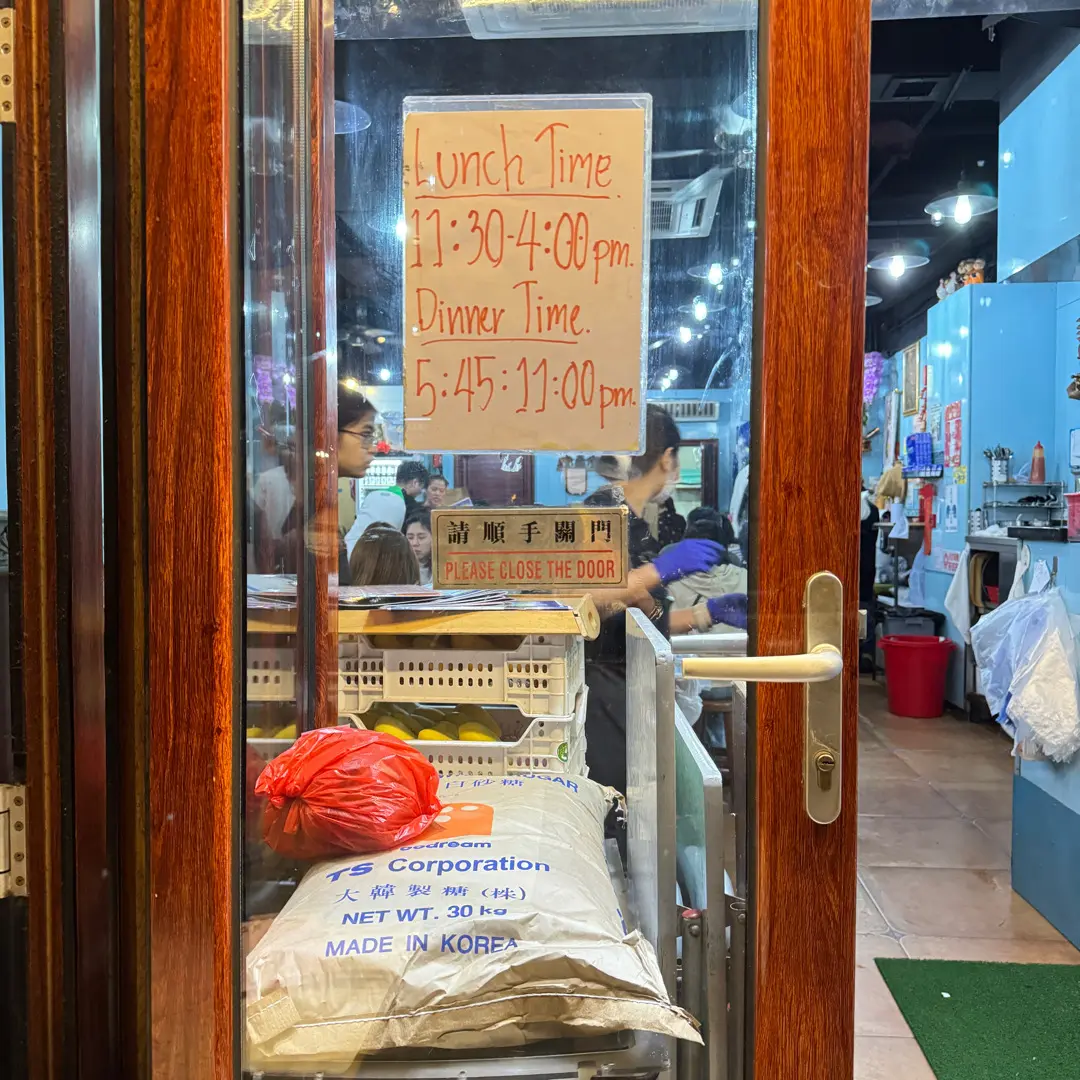 Lunch Time
11:30-4:00pm.
Dinner Time.
5:45:11:00pm.
請順手關門
PLEASE CLOSE THE DOOR
白砂糖
TS Corporation
大韓製糖(株)
NET WT. 30 kg
MADE IN KOREA